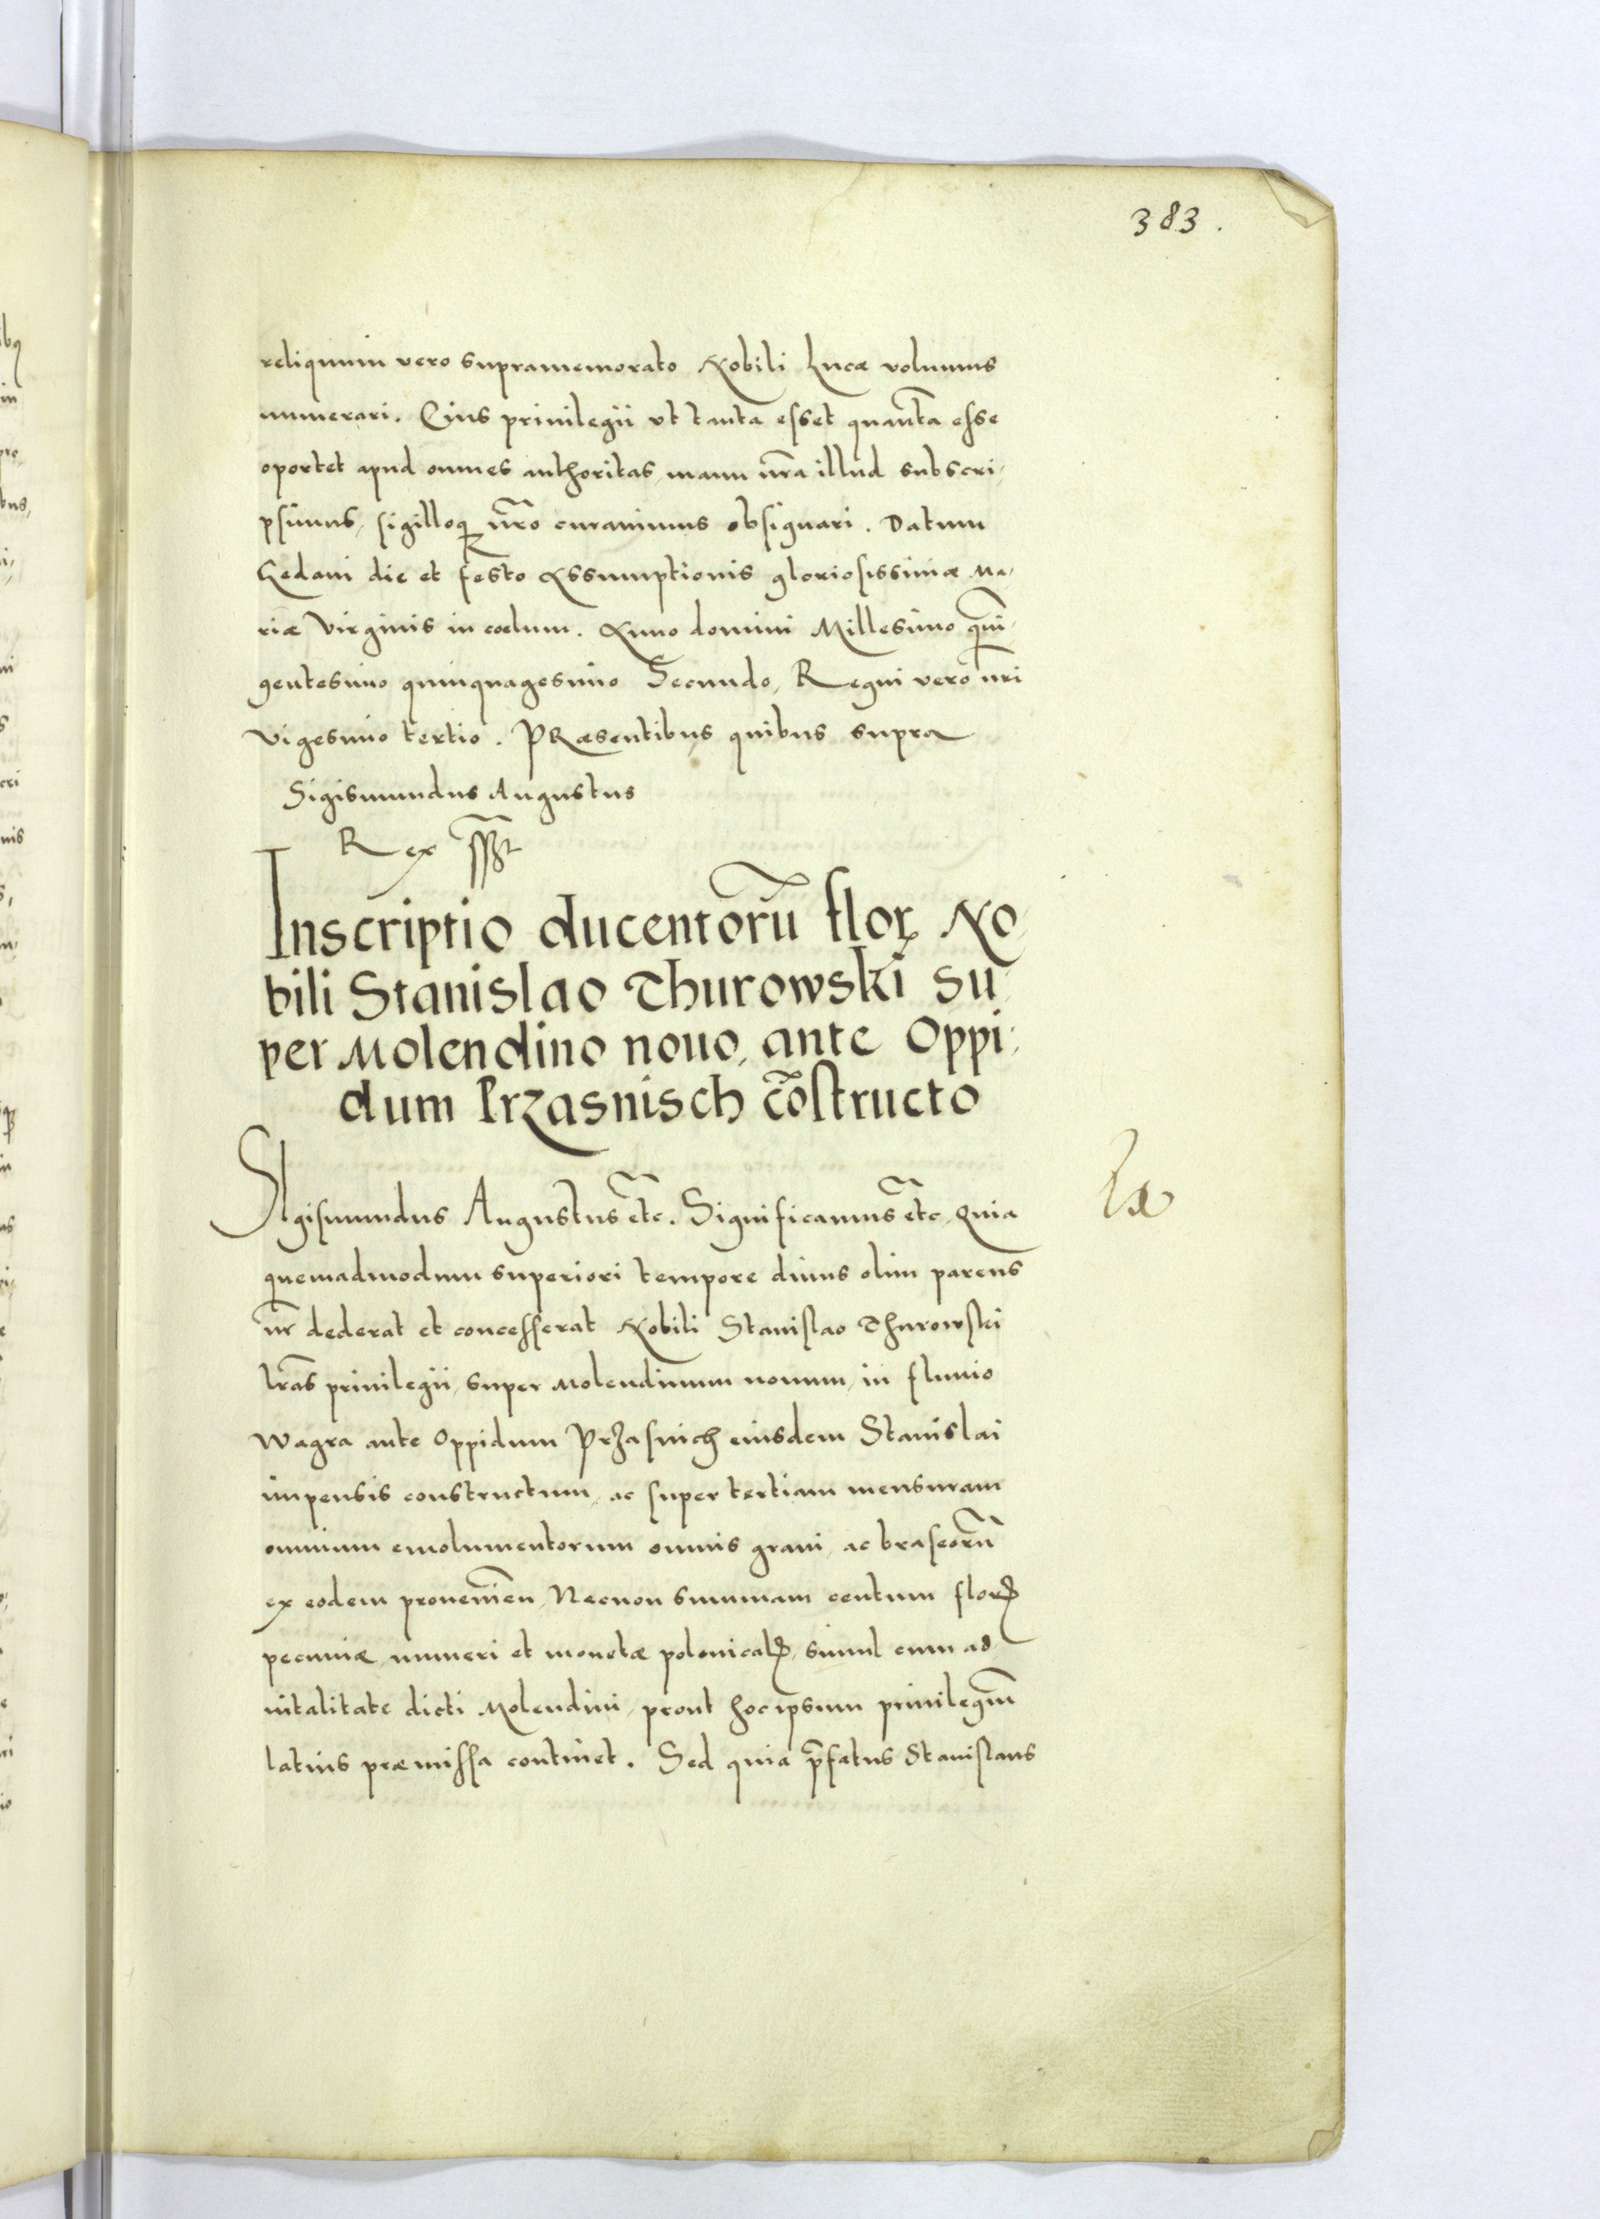 383.
reliquum vero supramemorato Nobili Lucæ volumus
numerari. Cuius priuilegii vt tanta esset quanta esse
oportet apud omnes authoritas, manu nr̃a illud subscri-
psimus, sigilloq; nr̃o curauimus obsignari. Datum
Gedani die et festo Assumptionis gloriosissimæ Ma-
riæ Virginis in cœlum. Anno domini Millesimo quin-
gentesimo quinquagesimo Secundo, Regni vero nr̃i
vigesimo tertio. PRæsentibus quibus supra
Sigismundus Augustus
Rex sst
Inscriptio ducentorũ flor. No-
bili Stanislao Thurowski su-
per Molendino nouo, ante Oppi-
dum Przasnisch cõstructo
SIgismundus Augustus etc̃. Significamus etc̃. Quia
quemadmodum superiori tempore diuus olim parens
nr̃ dederat et concesserat Nobili Stanislao Thurowski
lr̃as priuilegii, super Molendinum nouum, in fluuio
Wagra ante Oppidum Przasnich eiusdem Stanislai
impensis constructum, ac super tertiam mensuram
omnium emolumentorum omnis grani, ac braseorũ
ex eodem prouenien̄, Necnon summam centum flor.
pecuniæ, numeri et monetæ polonical. simul cum ad-
uitalitate dicti Molendini, prout hoc ipsum priuilegiũ
latius præmissa continet. Sed quia p̃fatus Stanislaus